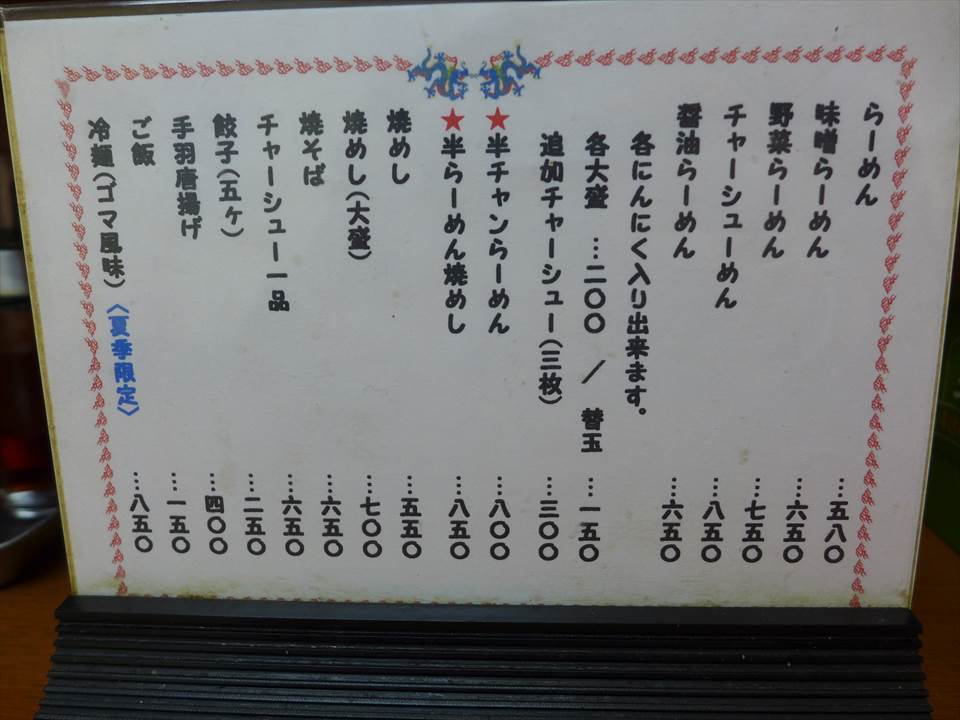 らーめん …五八〇
味噌らーめん …六五〇
野菜らーめん …七五〇
チャーシューめん …八五〇
醤油らーめん …六五〇
各にんにく入り出来ます。
各大盛 …二〇〇 / 替玉 …一五〇
追加チャーシュー(三枚) …三〇〇
★半チャンらーめん …八〇〇
★半らーめん焼めし …八五〇
焼めし …五五〇
焼めし(大盛) …七〇〇
焼そば …六五〇
チャーシュー一品 …六五〇
餃子(五ヶ) …二五〇
手羽唐揚げ …四〇〇
ご飯 …一五〇
冷麺(ゴマ風味)〈夏季限定〉 …八五〇